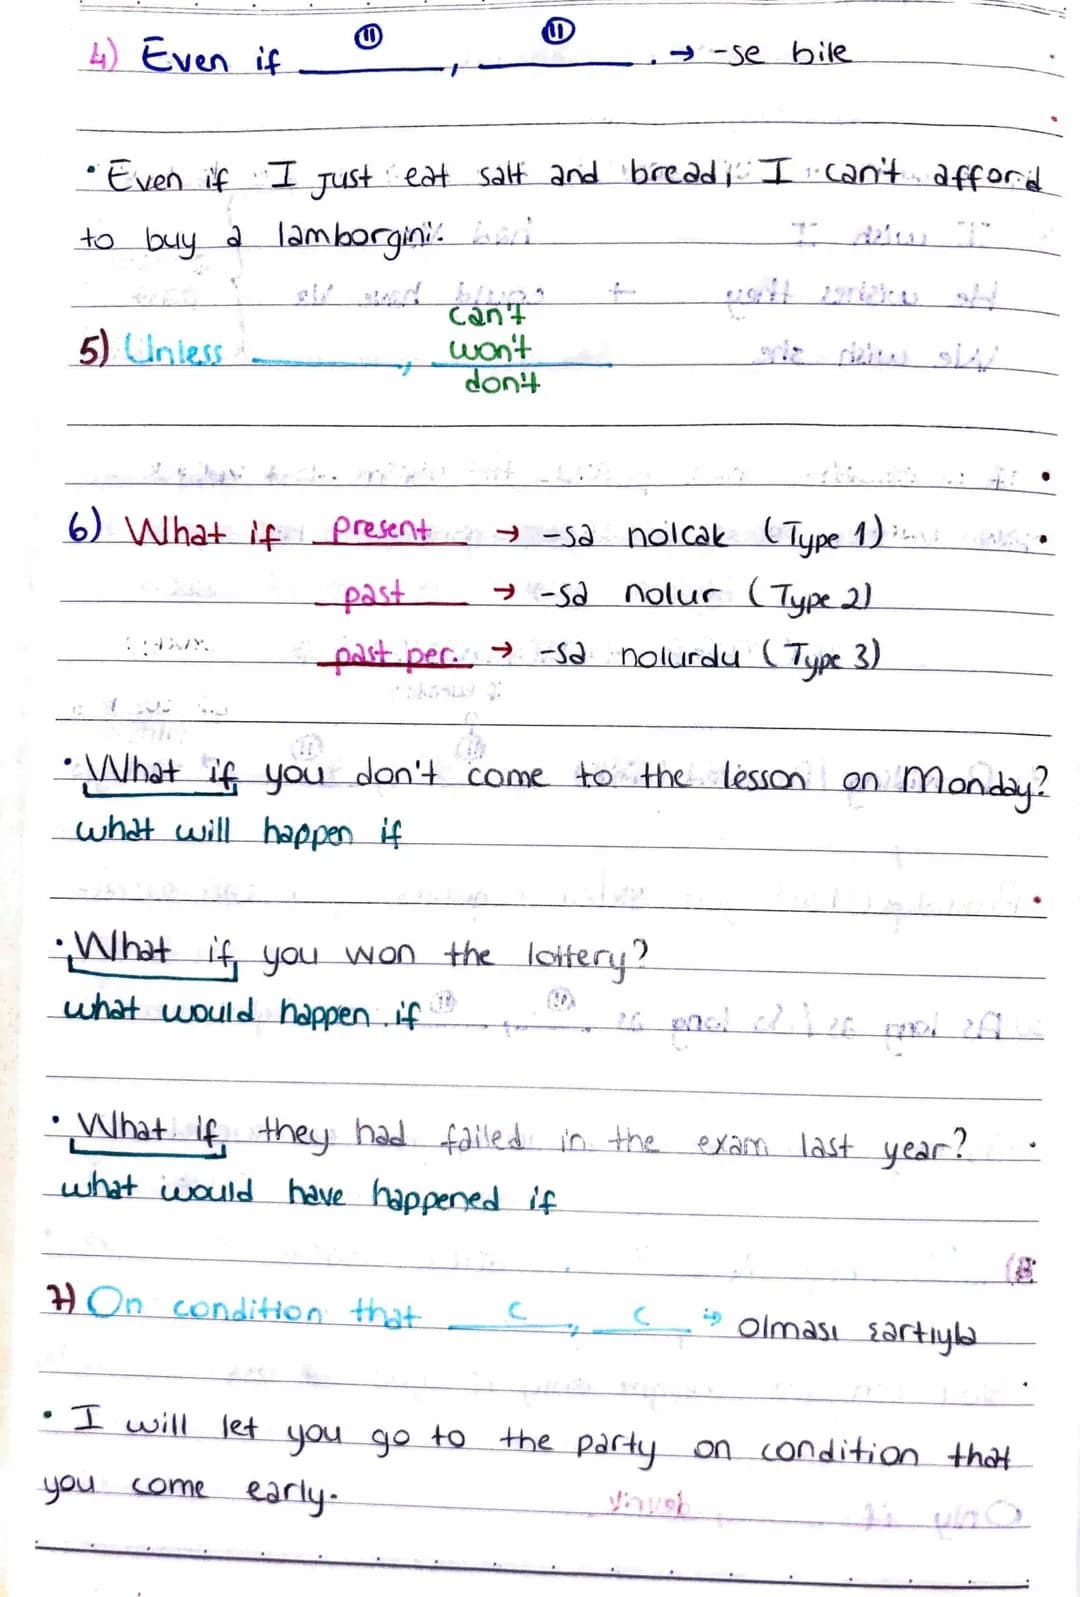 4) Even if ______, ______. → -se bile
• Even if I just eat salt and bread, I can't afford
to buy a lamborgini.
can't
5) Unless ______, won't
don't
6) What if present → -sa nolcak (Type 1)
past → -sa nolur (Type 2)
past per. → -sa nolurdu (Type 3)
• What if you don't come to the lesson on Monday?
what will happen if
• What if you won the lottery?
what would happen if
• What if they had failed in the exam last year?
what would have happened if
7) On condition that ______, ______ → olması şartıyla
• I will let you go to the party on condition that
you come early.